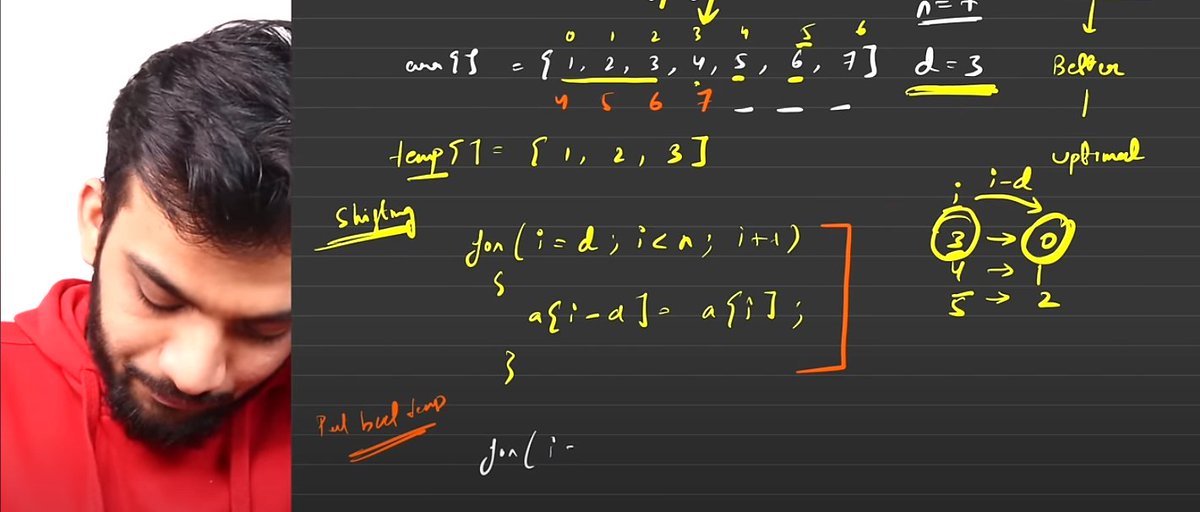 n = 7
0 1 2 3 4 5 6
arr[] = {1, 2, 3, 4, 5, 6, 7] d = 3
Better
4 5 6 7 _ _ _
temp[] = [1, 2, 3]
optimal
i i-d
Shifting
for(i = d; i < n; i++)
3 → 0
{
4 → 1
a[i-d] = a[i];
5 → 2
}
Put back temp
for(i =